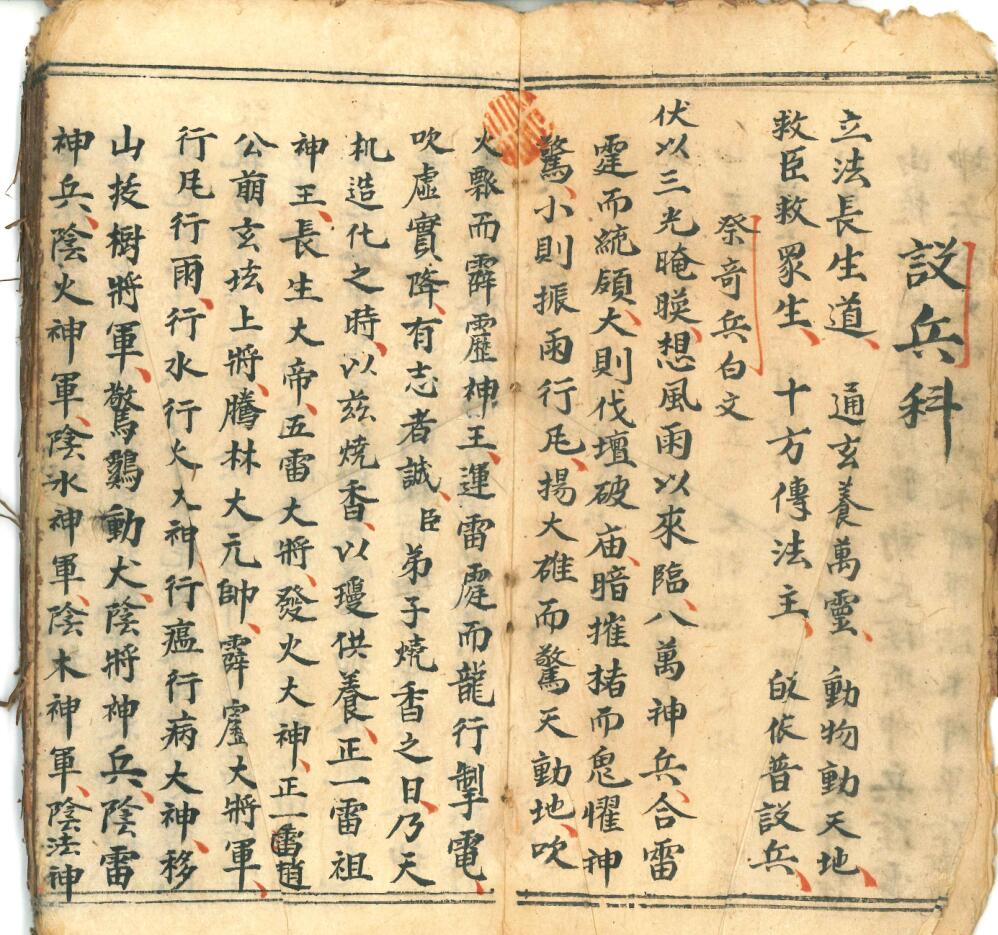 設兵科
立法長生道、通玄養萬靈、動物動天地、
救臣救眾生、十方傳法主、皈依普設兵、
祭奇兵白文
伏以三光晻暎、想風雨以來臨、八萬神兵、合雷
霆而統領、大則伐壇破庙、暗摧楮而鬼懼神
驚、小則振雨行風、揚大雄而驚天動地、吹
火飄而霹靂神王、運雷霆而龍行掣電、
吹虛實降、有志者誠、臣弟子燒香之日、乃天
机造化之時、以兹燒香、以瓊供養、正一雷祖
神王、長生大帝、五雷大將、發火大神、正一雷趙
公萠玄坛上將、騰林大元帥、霹靂大將軍、
行風行雨、行水行火大神、行瘟行病大神、移
山拔樹將軍、驚鷄動犬、陰將神兵、陰雷
神兵、陰火神軍、陰水神軍、陰木神軍、陰法神